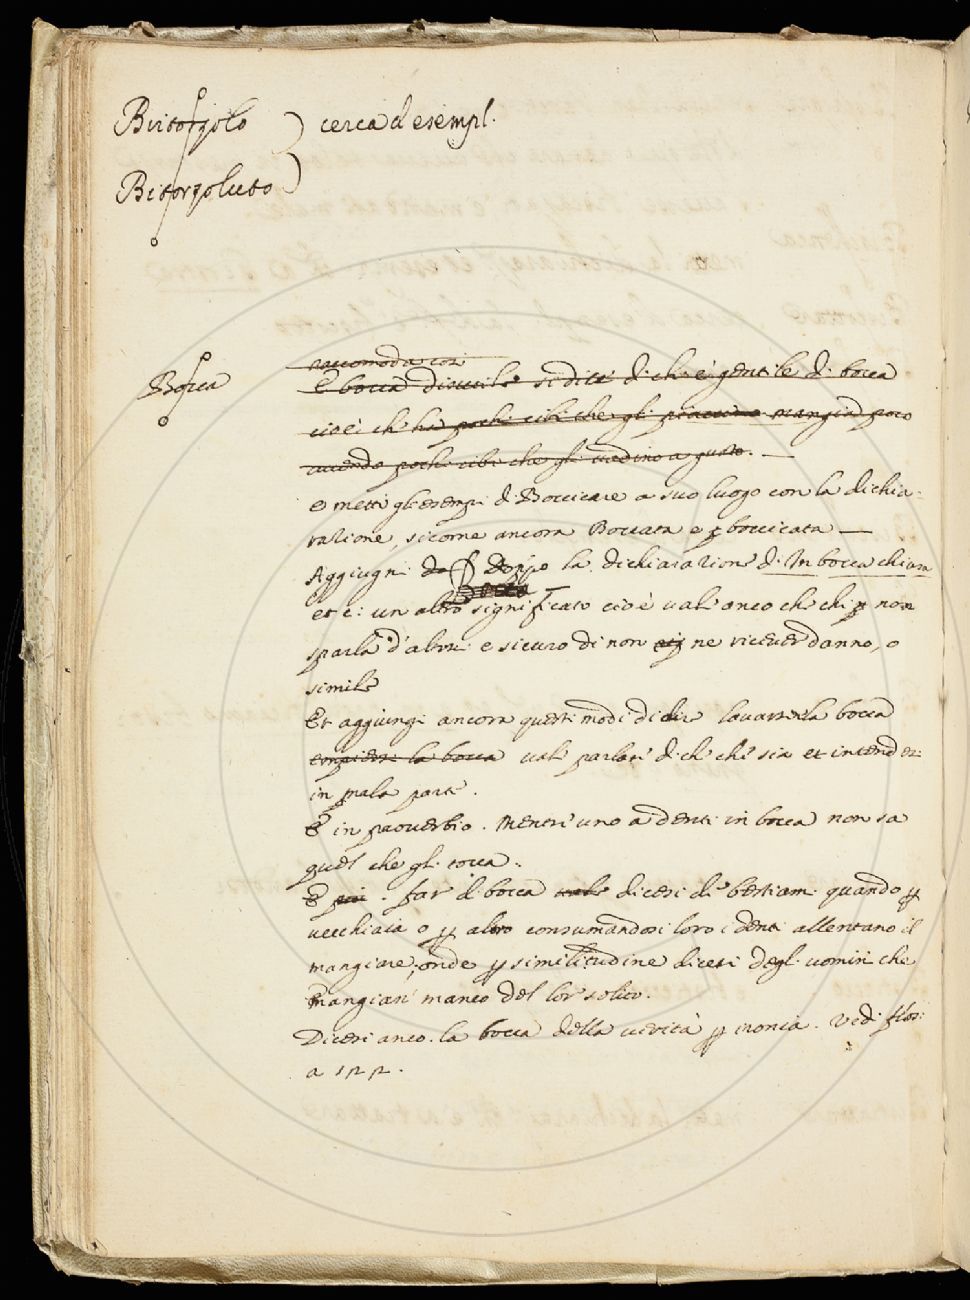 Bitorzolo
cerca d esempl.
Bitorzoluto
Bocca
raccomoda così
E bocca disutile si dice di chi è gentile di bocca
cioè ch ha pochi cibi che gli piaccino mangia poco
avendo pochi cibi che gli vadino a gusto.
e metti gl esempi di Boccicare a suo luogo con la dichia-
razione, sicome ancora Boccata e boccicata
Aggiugni doppo la dichiarazione di In bocca chiusa
etc: un altro significato cioè vale anco che chi non
sparla d'altri e sicuro di non ne ricever danno, o
simile
Et aggiungi ancora questi modi di dire lavarsi la bocca
empiersi la bocca vale parlare di ch che sia et intendesi
in mala parte.
E in proverbio. Mentre uno a denti in bocca non sa
quel che gli tocca.
E più. far di bocca vale dicesi de bestiami quando p
vecchiaia o p altro consumandosi loro i denti allentano il
mangiare, onde p similitudine dicesi degl uomini che
mangian manco del lor solito.
Dicesi anco. la bocca della verità p ironia. Vedi flos:
a 122.